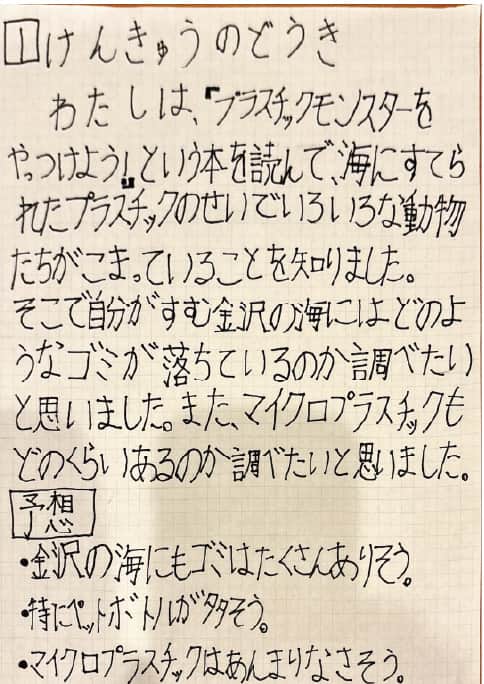 1 けんきゅうのどうき
わたしは、『プラスチックモンスターを
やっつけよう!』という本を読んで、海にすてら
れたプラスチックのせいでいろいろな動物
たちがこまっていることを知りました。
そこで自分がすむ金沢の海にはどのよ
うなゴミが落ちているのか調べたい
と思いました。また、マイクロプラスチックも
どのくらいあるのか調べたいと思いました。
予想
・金沢の海にもゴミはたくさんありそう。
・特にペットボトルが多そう。
・マイクロプラスチックはあんまりなさそう。